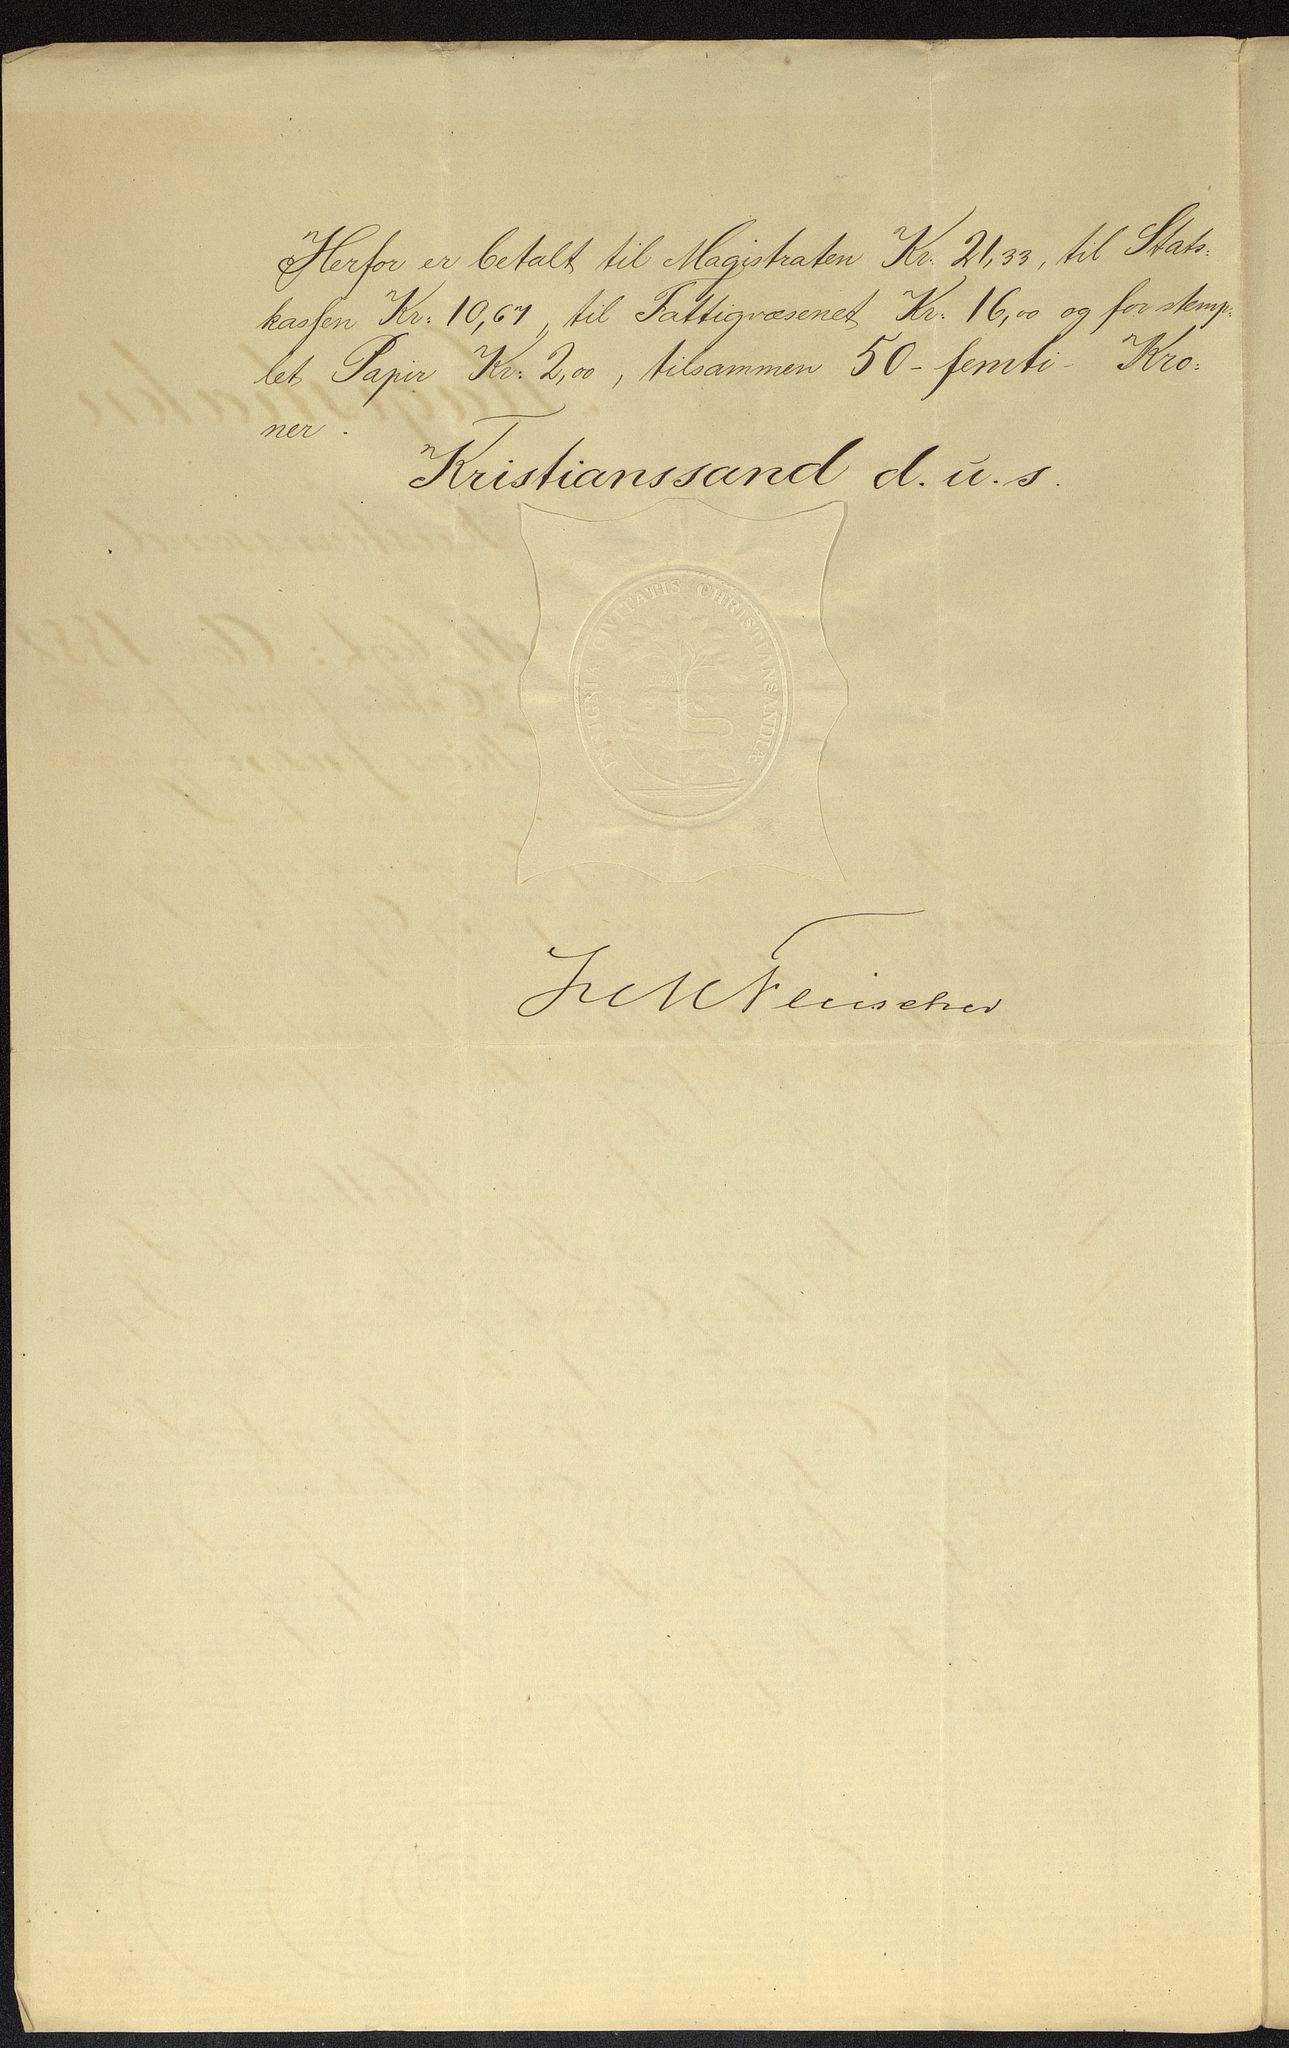 Herfor er betalt til Magistraten Kr. 21,33, til Stats-
kassen Kr: 10,67, til Fattigvæsenet Kr: 16,00 og for stemp-
let Papir Kr: 2,00, tilsammen 50 - femti - Kro-
ner.
Kristianssand d. u. s.
INSIGNIA CIVITATIS CHRISTIANSANDIÆ
Fleischer